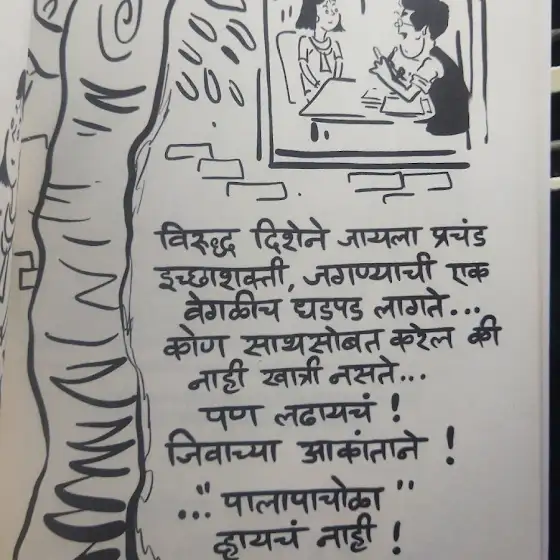 विरुद्ध दिशेने जायला प्रचंड
इच्छाशक्ती, जगण्याची एक
वेगळीच धडपड लागते...
कोण साथसोबत करेल की
नाही खात्री नसते...
पण लढायचं !
जिवाच्या आकांताने !
..." पालापाचोळा "
व्हायचं नाही !